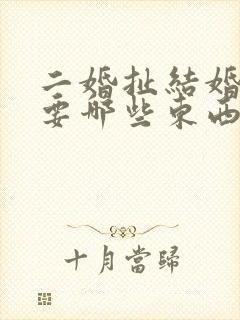 二婚扯結婚
要哪些東西
十月當歸